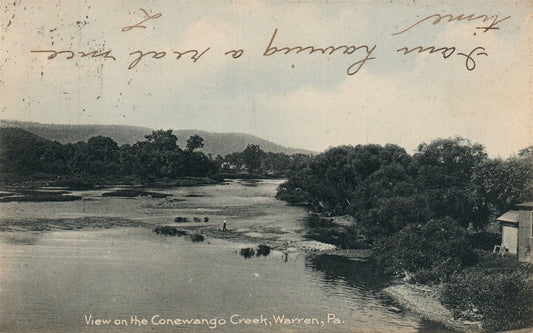 I am having a real nice
time L
View on the Conewango Creek, Warren, Pa.